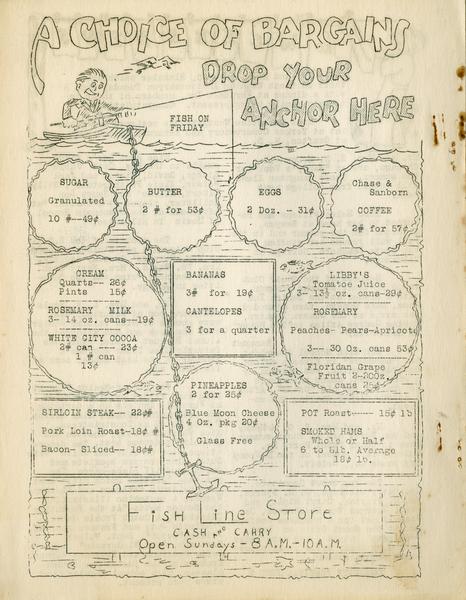 A CHOICE OF BARGAINS
DROP YOUR
ANCHOR HERE
FISH ON
FRIDAY
SUGAR
Granulated
10 #--49¢
BUTTER
2 # for 53¢
EGGS
2 Doz. - 31¢
Chase &
Sanborn
COFFEE
2# for 57¢
CREAM
Quarts-- 26¢
Pints 15¢
ROSEMARY MILK
3- 14 oz. cans--19¢
WHITE CITY COCOA
2# can --- 23¢
1 # can
13¢
BANANAS
3# for 19¢
CANTELOPES
3 for a quarter
LIBBY'S
Tomatoe Juice
3- 13½ oz. cans-29¢
ROSEMARY
Peaches- Pears-Apricot
3-- 30 Oz. cans 53¢
Floridan Grape
Fruit 2-20Oz.
cans 25¢
PINEAPPLES
2 for 25¢
Blue Moon Cheese
4 Oz. pkg 20¢
Glass Free
SIRLOIN STEAK-- 22¢#
Pork Loin Roast-18¢ #
Bacon- Sliced-- 18¢#
POT Roast----- 15¢ lb
SMOKED HAMS
Whole or Half
6 to 8lb. Average
18¢ lb.
FISH LINE STORE
CASH AND CARRY
Open Sundays - 8 A.M.-10 A.M.